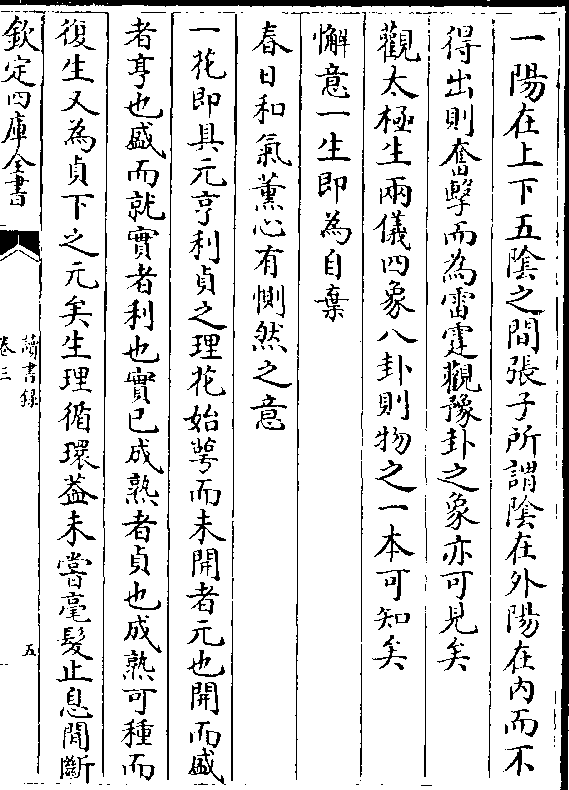 一陽在上下五陰之間張子所謂陰在外陽在内而不
得出則奮擊而為雷霆觀豫卦之象亦可見矣
觀太極生兩儀四象八卦則物之一本可知矣
懈意一生即為自棄
春日和氣薰心有惻然之意
一花即具元亨利貞之理花始萼而未開者元也開而盛
者亨也盛而就實者利也實已成熟者貞也成熟可種而
復生又為貞下之元矣生理循環葢未嘗毫髮止息間斷
欽定四庫全書
讀書録
卷三
五